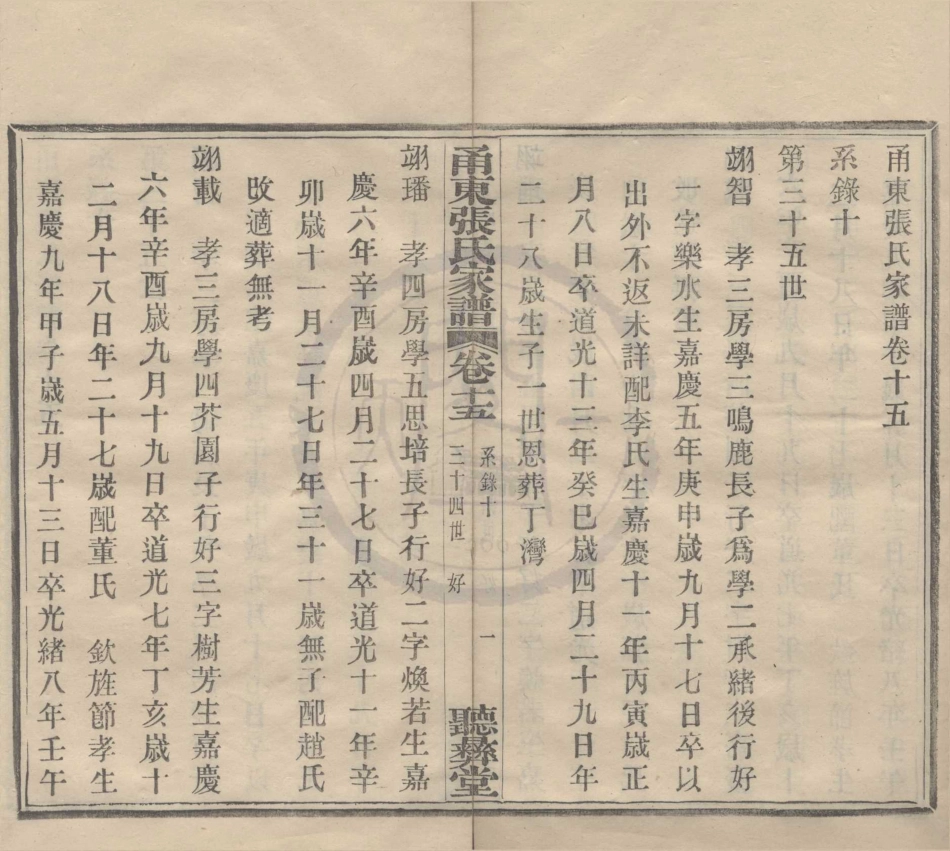 甬東張氏家譜卷十五
系錄十
第三十五世
翊智　孝三房學三鳴鹿長子爲學二承緒後行好
一字樂水生嘉慶五年庚申嵗九月十七日卒以
出外不返未詳配李氏生嘉慶十一年丙寅嵗正
月八日卒道光十三年癸巳嵗四月二十九日年
二十八嵗生子一世恩葬丁灣
甬東張氏家譜　卷十五　系錄十　三十四世　好　一　聽彝堂
翊璠　孝四房學五思培長子行好二字煥若生嘉
慶六年辛酉嵗四月二十七日卒道光十一年辛
卯嵗十一月二十七日年三十一嵗無子配趙氏
改適葬無考
翊載　孝三房學四芥園子行好三字樹芳生嘉慶
六年辛酉嵗九月十九日卒道光七年丁亥嵗十
二月十八日年二十七嵗配董氏　欽旌節孝生
嘉慶九年甲子嵗五月十三日卒光緒八年壬午